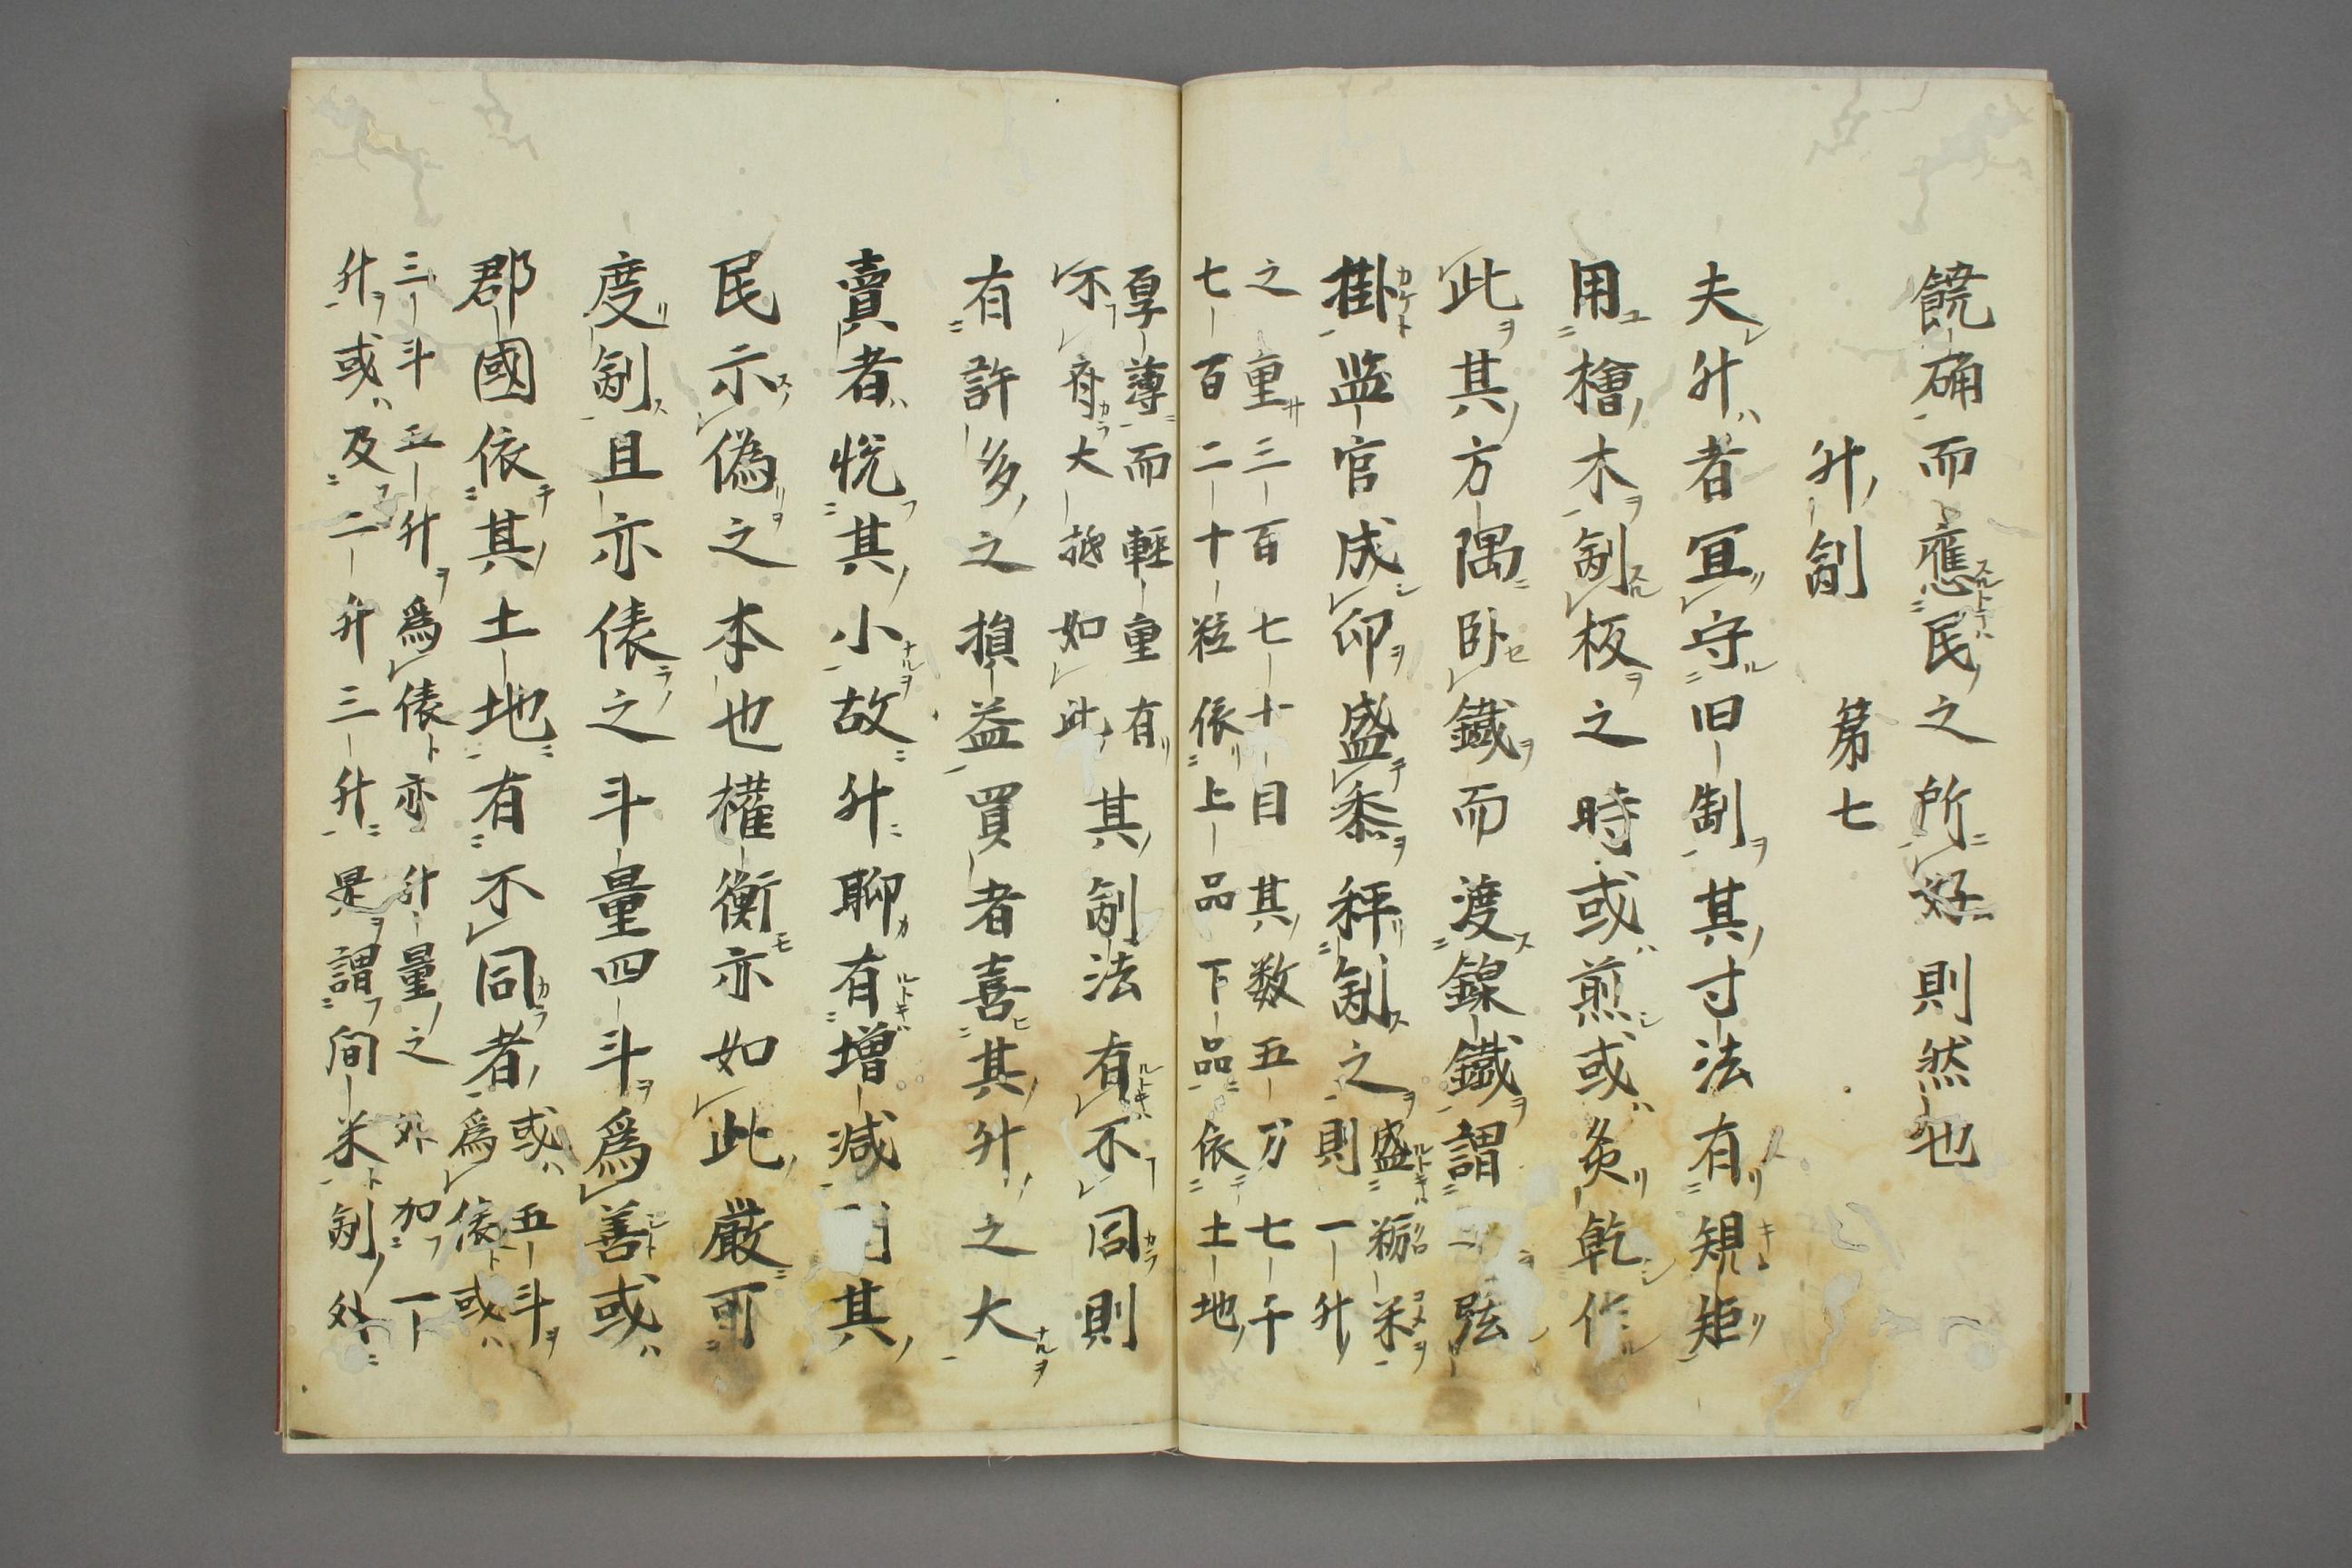 饒确而應民之所好則然也
升剳 第七
夫升者宜守旧制其寸法有規矩
用檜木剳板之時或煎或灸乾作
此其方隅卧鐵而渡鏁鐵謂 弦
掛監官成印盛黍秤剳之則
盛粝米
一升
之重三百七十目其数五万七千
七百二十粒依上品下品依土地
厚薄而軽重有
不府大抵如此
其剳法有不同則
有許多之損益買者喜其升之大
賣者悦其小故升聊有增減 其
民示偽之本也權衡亦如此厳可
度剳且亦俵之斗量四斗爲善或
郡國依其土地有不同者
或五斗
爲俵或
三斗五升爲俵亦升量之外加一下
升或及二升三升是謂間米剳外